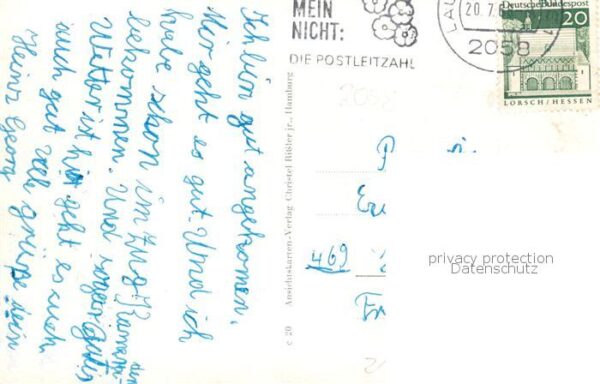 Ich bin gut angekomen,
Mir geht es gut Und ich
habe schon im Zug Kameraden
bekommen. Und sogar gutes
Wetter ist hir geht es euch
auch gut viele grüße dein
Heinz Georg
MEIN
NICHT:
DIE POSTLEITZAHL
20.7.6
2058
Deutsche Bundespost
20
LORSCH/HESSEN
2058
469
c 20 Ansichtskarten-Verlag Christel Rißler jr., Hamburg
privacy protection
Datenschutz